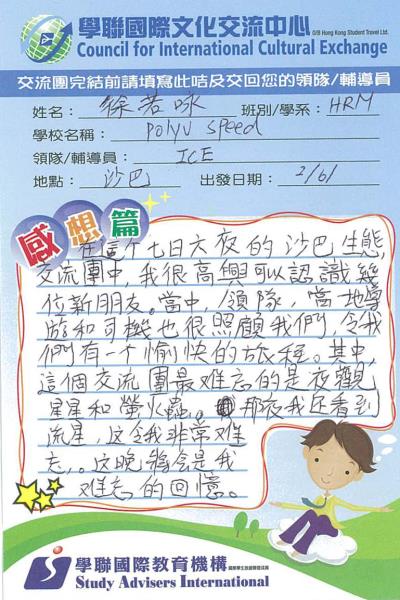 學聯國際文化交流中心 O/B Hong Kong Student Travel Ltd.
Council for International Cultural Exchange
交流團完結前請填寫此咭及交回您的領隊/輔導員
姓名：徐若咏 班別/學系：HRM
學校名稱：PolyU Speed
領隊/輔導員：ICE
地點：沙巴 出發日期：2/6/
感想篇
在這个七日六夜的沙巴生態
交流團中，我很高興可以認識幾
位新朋友。當中，領隊，當地導
遊和司機也很照顧我們，令我
們有一个愉快的旅程。其中，
這個交流團最难忘的是夜觀
星星和螢火蟲。那夜我还看到
流星，这令我非常难
忘，。这晚將会是我
难忘的回憶。
學聯國際教育機構
Study Advisers International